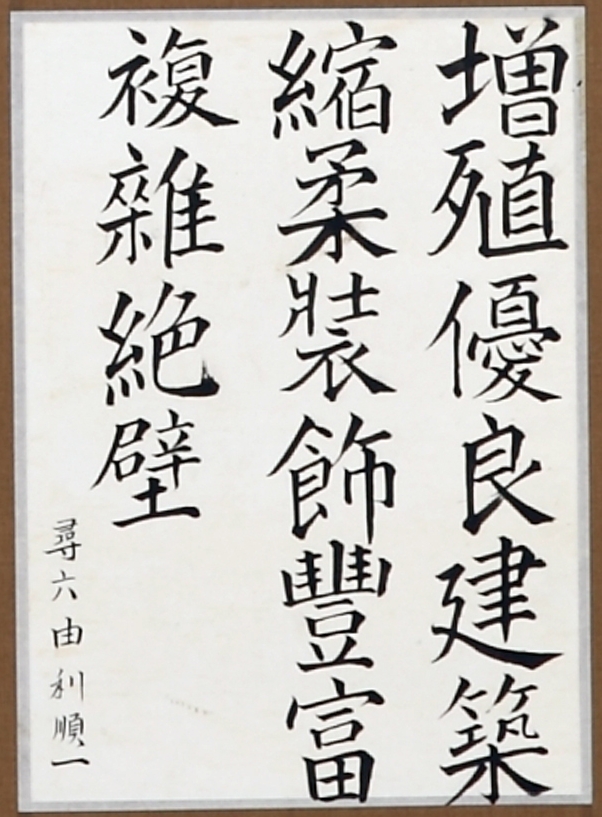 増殖優良建築
縮柔装飾豐富
複雜絶壁
尋六由利順一